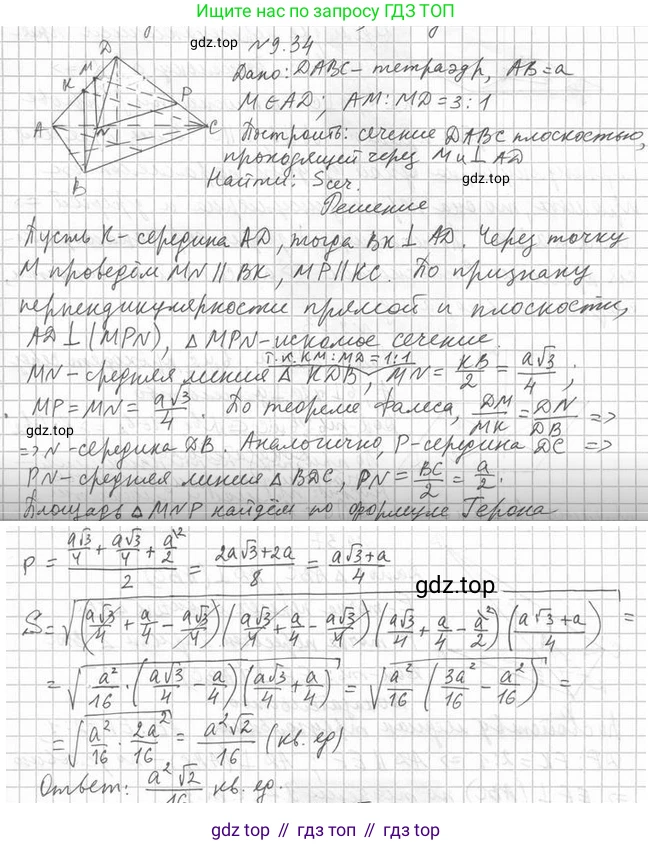 Ищите нас по запросу ГДЗ ТОП
gdz.top
N9.34
Дано: DABC - тетраэдр, AB = a
M ∈ AD; AM:MD = 3:1
Построить: сечение DABC плоскостью,
проходящей через M и ⊥ AD
Найти: Sсеч.
Решение
D
M
K
P
A
N
C
B
Пусть K - середина AD, тогда BK ⊥ AD. Через точку
M проведём MN ∥ BK, MP ∥ KC. По признаку
перпендикулярности прямой и плоскости,
AD ⊥ (MPN), △MPN - искомое сечение.
т.к. KM:MD = 1:1
MN - средняя линия △ KDB, MN = KB/2 = a√3/4 ;
MP = MN = a√3/4 . По теореме Фалеса, DM/MK = DN/DB =>
gdz.top
=> N - середина DB. Аналогично, P - середина DC =>
PN - средняя линия △ BDC, PN = BC/2 = a/2 .
Площадь △ MNP найдём по формуле Герона
p = (a√3/4 + a√3/4 + a/2)/2 = (2a√3 + 2a)/8 = (a√3 + a)/4
gdz.top
S = √((a√3/4 + a/4 - a√3/4)(a√3/4 + a/4 - a√3/4)(a√3/4 + a/4 - a/2)((a√3 + a)/4)) =
= √(a²/16 · (a√3/4 - a/4)(a√3/4 + a/4)) = √(a²/16 (3a²/16 - a²/16)) =
= √(a²/16 · 2a²/16) = a²√2/16 (кв. ед)
Ответ: a²√2/16 кв. ед.
gdz.top // гдз.топ // гдз.top